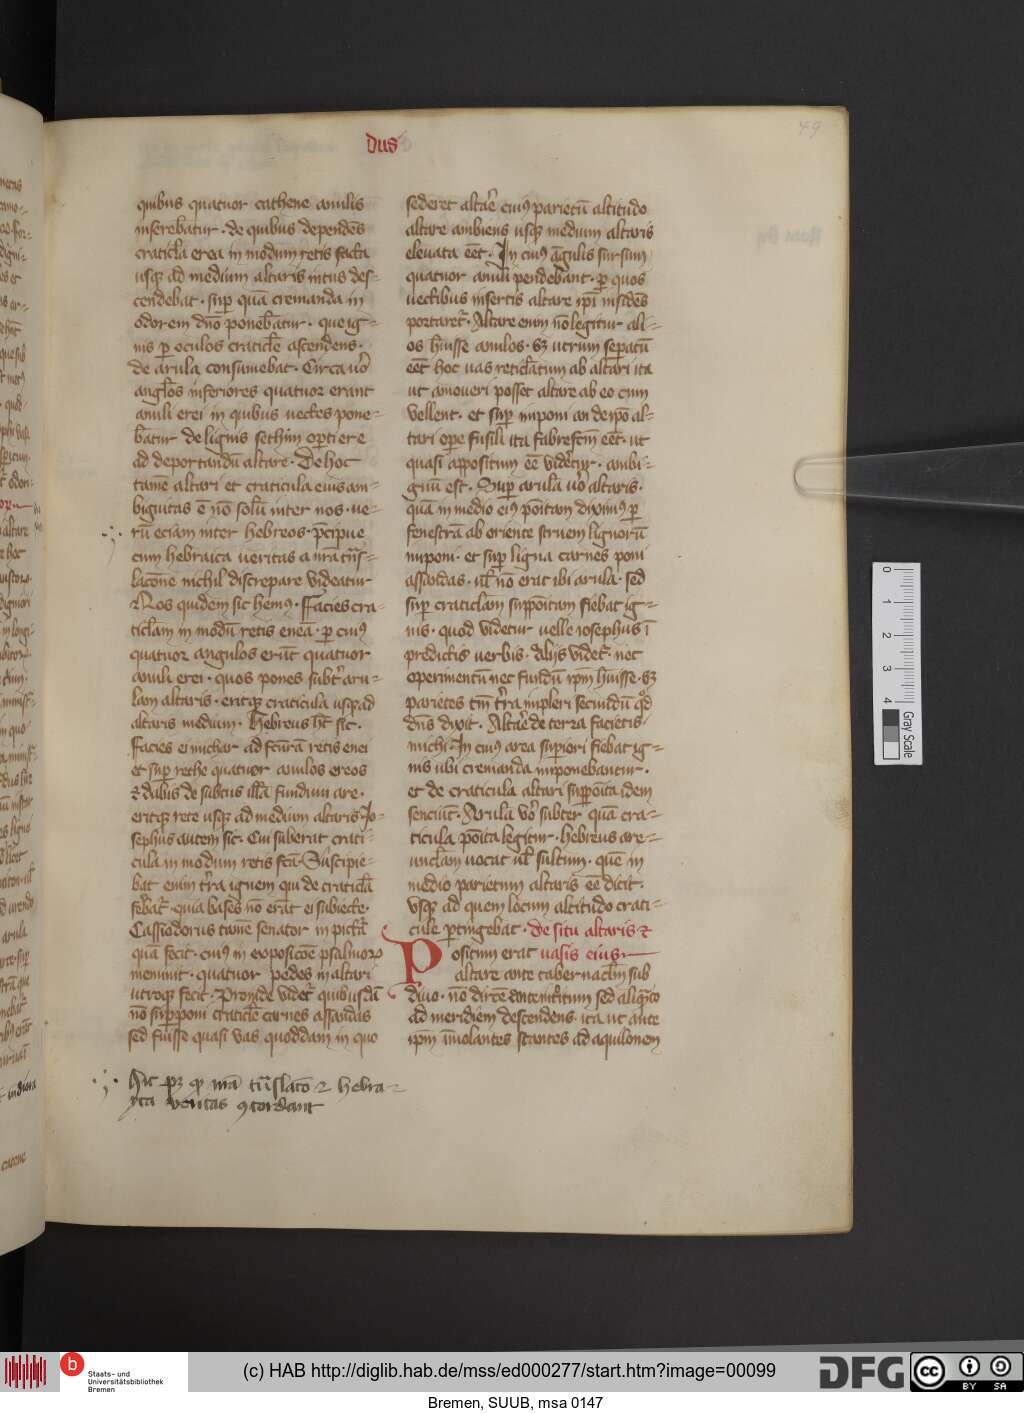 dus
49
quibus quatuor cathene anulis
inserebantur · de quibus dependēs
craticl̄a erea in modum retis facta
usqꝫ ad medium altaris intus des-
cendebat · sup̄ quā cremanda in
odorem dn̄o poneb̄atur · que ig-
nis ꝑ oculos craticl̄e ascendens ·
de arula consumebat · Circa u̾o
angl̄os inferiores quatuor erant
anuli erei in quibus uectes pone-
b̄atur de lignis sethim op̄ti ere
ad deportandū altare · De hoc
tamē altari et craticula eius am-
biguitas ē nō solū inter nos · ue-
rū eciam inter hebreos · p̄cipue
cum hebraica ueritas a nr̄a trās-
lacōne nichil discrepare videatur
Nos quidem sic hēmꝰ · Facies cra-
ticl̄am in modū retis eneā · ꝑ cuiꝰ
quatuor angulos erūt quatuor
anuli erei · quos pones subt̾ aru-
lam altaris · eritqꝫ craticula uspꝫ ad
altaris medium · Hebreus hꝫ sic ·
Facies ei michar ad fc̄urā retis enei
et sup̄ rethe quatuor anulos ereos
⁊ dabis de subtus illā fundum are ·
eritqꝫ rete usqꝫ ad medium altaris Jo-
sephus autem sic · Cui suberat crati-
cula in modum retis fc̄ā · Suscipie-
bat enim t̾ra ignem qui de craticl̄a
fereb̄at᷑ · quia bases nō erāt ei subiecte ·
Cassiodorus tamē senator in pict̾a
quā fecit · cuiꝰ in exposicōe psalmoꝝ
meminit · quatuor pedes in altari
utroqꝫ fecit · Proinde videt᷑ quibusdā
nō sup̄poni craticl̄e carnes assandas
sed fuisse quasi vas quoddam in quo
sederet altar̾e cuiꝰ parietū altitudo
altare ambiens usqꝫ medium altaris
eleuata eēt · In cuiꝰ āgulis sursum
quatuor anuli pendebant · ꝑ quos
uectibus insertis altare ip̄i insidēs
portaret᷑ · Altare enim nō legitur ali-
os h̄uisse anulos · sꝫ utrum sep̄atū
eēt hoc uas reticl̄atum ab altari ita
ut amoueri posset altare ab eo cum
vellent · et sup̄ imponi an de ip̄o al-
tari ope fusili ita fabrefc̄m eēt · ut
quasi appositum eē vider̾tur · ambi-
guū est · Sup̄ arulā u̾o altaris ·
quā in medio eiꝰ po᷑itam diximꝰ ꝑ
fenestrā ab oriente struem lignorū
imponi · et sup̄ ligna carnes poni
assandas · ul̄ nō erat ibi arula · sed
sup̄ craticl̄am sup̄po᷑itam fiebat ig-
nis · quod videtur uelle iosephus ī
predictis uerbis · Alijs videt᷑ · nec
operimentū nec fundū ip̄m h̄uisse · sꝫ
parietes tm̄ t̾ra impleri secundū qd̾
dn̄s dixit · Altar̾e de terra facietis
michi · In cuiꝰ area sup̄iori fiebat ig-
nis ubi cremanda imponebantur ·
et de craticula altari sup̄po᷑ita idem
senciūt · Arulā u̾o subter quā cra-
ticula po᷑ita legitur · hebreus are-
uncl̄am uocat ul̄ sultum · quē in
medio parietum altaris eē dicit ·
Vsqꝫ ad quem locum altitudo crati-
cule ꝑtingebat · de situ altaris ⁊
Positum erat uasis eius
altare ante tabernacl̄m sub
diuo · nō
ad meridiem descendens · ita ut ante
ip̄m īmolantes stantes ad aquilonem
hic pꝫ qꝫ nr̄a trāslatō ⁊ hebra-
yca veritas ꝯcordant
0 1 2 3 4
Gray Scale
b Staats- und
Universitätsbibliothek
Bremen
(c) HAB http://diglib.hab.de/mss/ed000277/start.htm?image=00099
DFG
cc BY SA
Bremen, SUUB, msa 0147